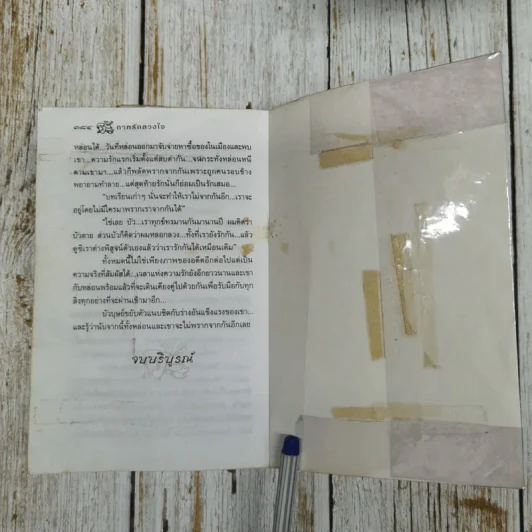 ๓๘๔ ภาพลักลวงใจ
หล่อนได้...วันที่หล่อนออกมาจับจ่ายหาซื้อของในเมืองและพบ
เขา...ความรักแรกเริ่มตั้งแต่สบตากัน...จนกระทั่งหล่อนหนี
ตามเขามา...แล้วก็พลัดพรากจากกันเพราะถูกคนรอบข้าง
พยายามทำลาย...แต่สุดท้ายรักนั่นก็ย่อมเป็นรักเสมอ...
"บทเรียนเก่าๆ นั่นจะทำให้เราไม่จากกันอีก...เราจะ
อยู่โดยไม่มีใครมาพรากเราจากกันได้"
"ใช่เลย บัว...เราทุกข์ทรมานกันมานานปี ผมคิดว่า
บัวตาย ส่วนบัวก็คิดว่าผมหลอกลวง...ทั้งที่เรายังรักกัน...แล้ว
ดูซิเราต่างพิสูจน์ตัวเองแล้วว่าเรารักกันได้เหมือนเดิม"
ทั้งหมดนี้ไม่ใช่เพียงภาพของอดีตอีกต่อไปแต่เป็น
ความจริงที่สัมผัสได้...เวลาแห่งความรักยังอีกยาวนานและเขา
กับหล่อนพร้อมแล้วที่จะเดินเคียงคู่ไปด้วยกันเพื่อรับมือกับทุก
สิ่งทุกอย่างที่จะผ่านเข้ามาอีก...
บัวบุษย์ขยับตัวแนบชิดกับร่างอันแข็งแรงของเขา...
และรู้ว่านับจากนี้ทั้งหล่อนและเขาจะไม่พรากจากกันอีกเลย
จบบริบูรณ์